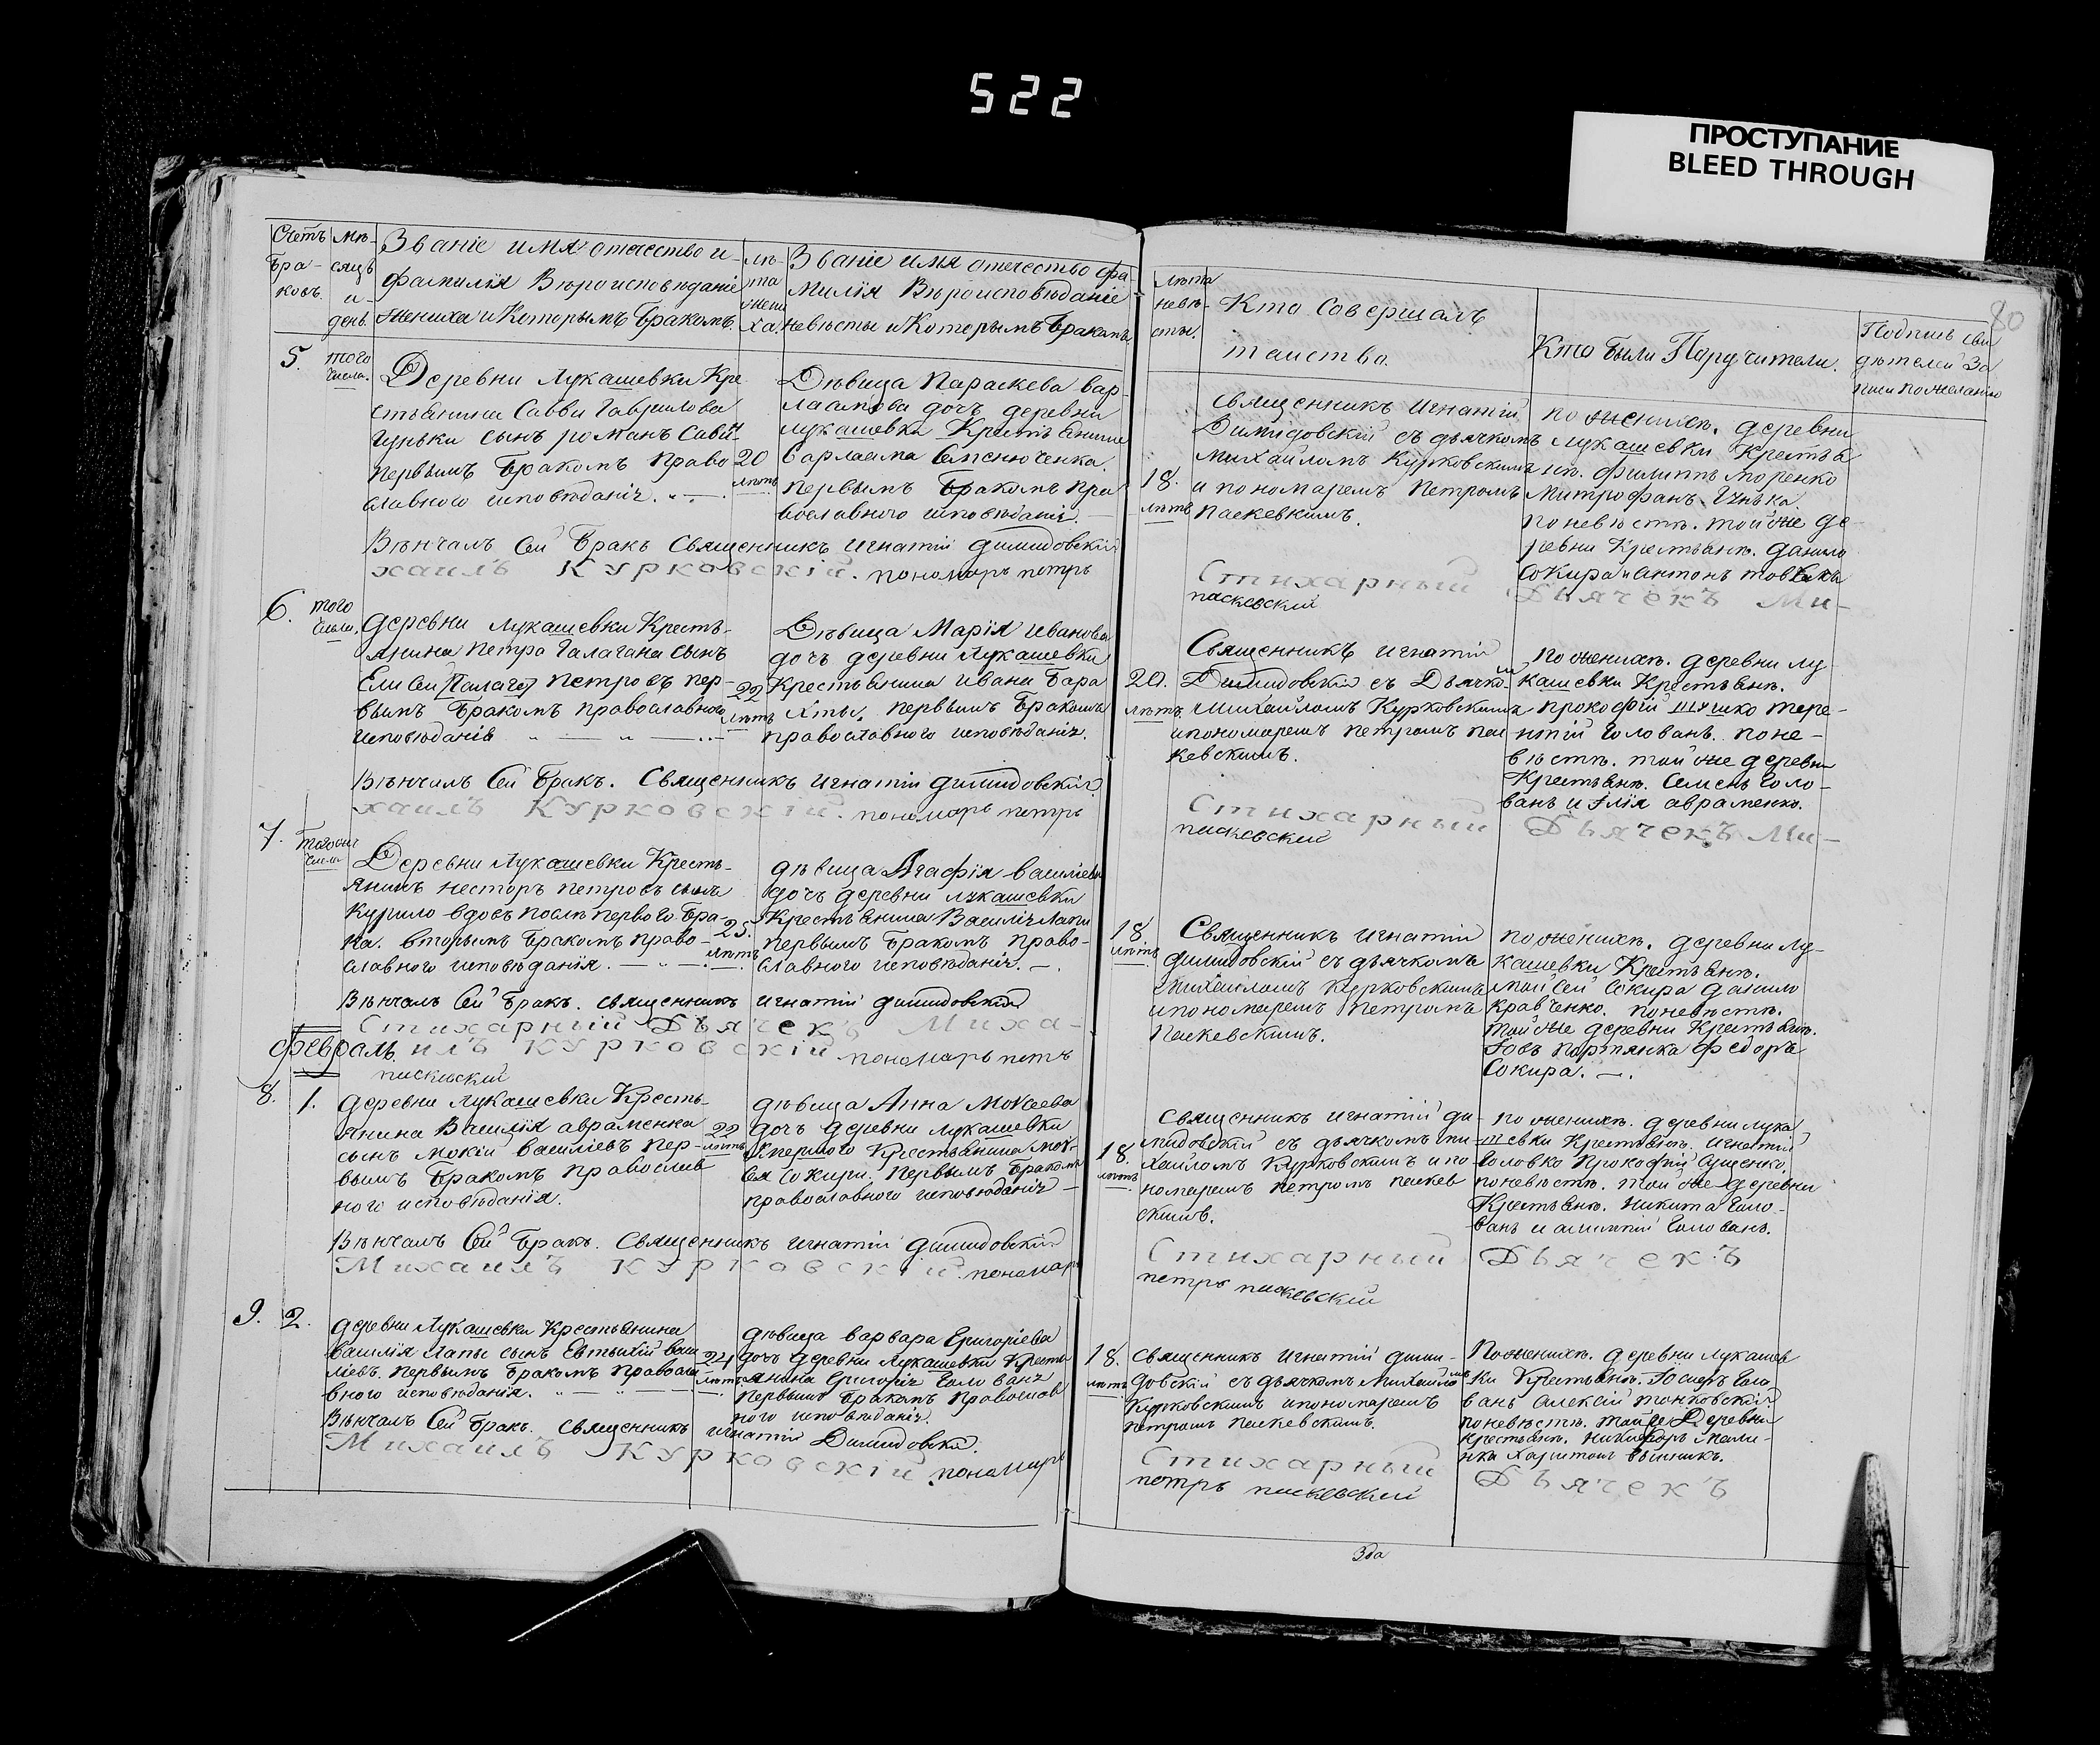 522
ПРОСТУПАНИЕ
BLEED THROUGH
80
Счетъ Бра-ковъ.
Мѣ-сяцъ и-день.
Званіе имя отчество и
фамилія Вѣроисповѣданіе
жениха и Которымъ Бракомъ.
Лѣ-та жени ха.
Званіе имя отечество фа
милія Вѣроисповѣданіе
невѣсты и Которымъ Бракомъ.
Лѣта невѣ-сты.
Кто Совершалъ
таинство.
Кто были Поручители.
Подпись сви
дѣтелей За
писи по желанію
5.
того
числа.
Деревни Лукашевки Кре
стьянина Савви Гаврилова
сынъ романъ
Первымъ Бракомъ Право
славного исповѣданія.
20
лѣтъ
Дѣвица Параскева вар
лаамова дочъ деревни
лукашевки Крестьянина
варлаама
Первымъ Бракомъ пра
вославного исповѣданія.
18.
лѣтъ
Священникъ Игнатій
Димидовскій съ дьячкомъ
михайломъ Курковскимъ
и пономаремъ Петромъ
Паскевкимъ.
по женихѣ. деревни
лукашевки Крестья
нѣ. филиппъ
Митрофанъ
по невѣстѣ. той же де
ревни Крестьянѣ. данило
Сокира и антонъ
Вѣнчалъ Сей Бракъ Священникъ Игнатій димидовскій
Стихарный Дьячекъ Ми-
хаилъ Курковскій. пономаръ петръ
паскевскій
6.
того
числа.
деревни лукашевки Кресть-
янина Петра Галагана сынъ
Елисей Петровъ пер-
вымъ Бракомъ православного
исповѣданія
22
лѣтъ
Дѣвица Марія иванова
дочъ деревни Лукашевки
Крестьянина ивана Бара
хты. первымъ Бракомъ
православного исповѣданія.
20.
лѣтъ.
Священникъ игнатій
Димидовскій съ Дьячкомъ
Михайломъ Курковскимъ
и пономаремъ петромъ пас
кевскимъ.
по женихѣ. деревни лу-
кашевки Крестьянѣ.
прокофій Шушко тере-
нтій Голованъ. по не-
вѣстѣ. той же деревни
Крестьянѣ. Семенъ Голо-
ванъ и Илія авраменко.
Вѣнчалъ Сей Бракъ. Священникъ игнатій димидовскій.
Стихарный Дьячекъ Ми-
хаилъ Курковскій. пономаръ петръ
паскевскій
7.
того же
числа
Деревни Лукашевки Кресть-
янинъ несторъ петровъ сынъ
Курило вдовъ послѣ первого Бра-
ка. вторымъ Бракомъ право-
славного исповѣданія.
25.
лѣтъ
дѣвица Агафія василіева
дочъ деревни лукашевки
Крестьянина Василія Лапи
первымъ Бракомъ право-
славного исповѣданія.
18
лѣтъ
Священникъ игнатій
димидовскій съ дьячкомъ
Михайломъ Курковскимъ
и пономаремъ Петромъ
Паскевскимъ.
по женихѣ. деревни лу-
кашевки Крестьянѣ.
Мойсей Сокира данило
кравченко. по невѣстѣ.
той же деревни Крестьянѣ.
Іовъ Партянка федоръ
Сокира.
Вѣнчалъ Сей Бракъ. священникъ игнатій димидовскій
Стихарный Дьячекъ Миха-
илъ Курковскій пономаръ петъ
паскевскій
февраль
8.
1.
деревни Лукашевки Кресть-
янина Василія авраменка
сынъ мокій василіевъ пер-
вымъ Бракомъ православ
ного исповѣданія.
22
лѣтъ
дѣвица Анна Мокіева
дочъ деревни лукашевки
умершого Крестьянина мок-
ія Сокири. Первымъ Бракомъ
православного исповѣданія
18.
лѣтъ
священникъ игнатій ди-
мидовскій съ дьячкомъ ми-
хайломъ Курковскимъ и по
номаремъ петромъ паскев
скимъ.
по женихѣ. деревни лука
шевки Крестьянѣ. игнатій
Головко Прокофій Сущенко.
по невѣстѣ. той же деревни
Крестьянѣ. никита Голо-
ванъ и Голованъ.
Вѣнчалъ Сей Бракъ. Священникъ игнатій димидовскій
Стихарный Дьячекъ
Михаилъ Курковскій. пономаръ
петръ паскевскій
9.
2.
деревни Лукашевки Крестьянина
василія Лапы сынъ Евтихій васи
ліевъ. первымъ Бракомъ Православ
вного исповѣданія.
24
лѣтъ
дѣвица варвара Григоріева
дочъ деревни Лукашевки Кресть
янина Григорія Голованя
первымъ Бракомъ Православ
ного исповѣданія.
18.
лѣтъ
священникъ игнатій дими-
довскій съ дьячкомъ Михайломъ
Курковскимъ и пономаремъ
петромъ паскевскимъ.
По женихѣ. деревни лукашев
ки Крестьянѣ. Голо
ванъ алексій
по невѣстѣ. Деревни
Крестьянѣ.
Харитонъ
Вѣнчалъ Сей Бракъ. священникъ игнатій Димидовскій.
Стихарный Дьячекъ
Михаилъ Курковскій пономаръ
петръ паскевскій